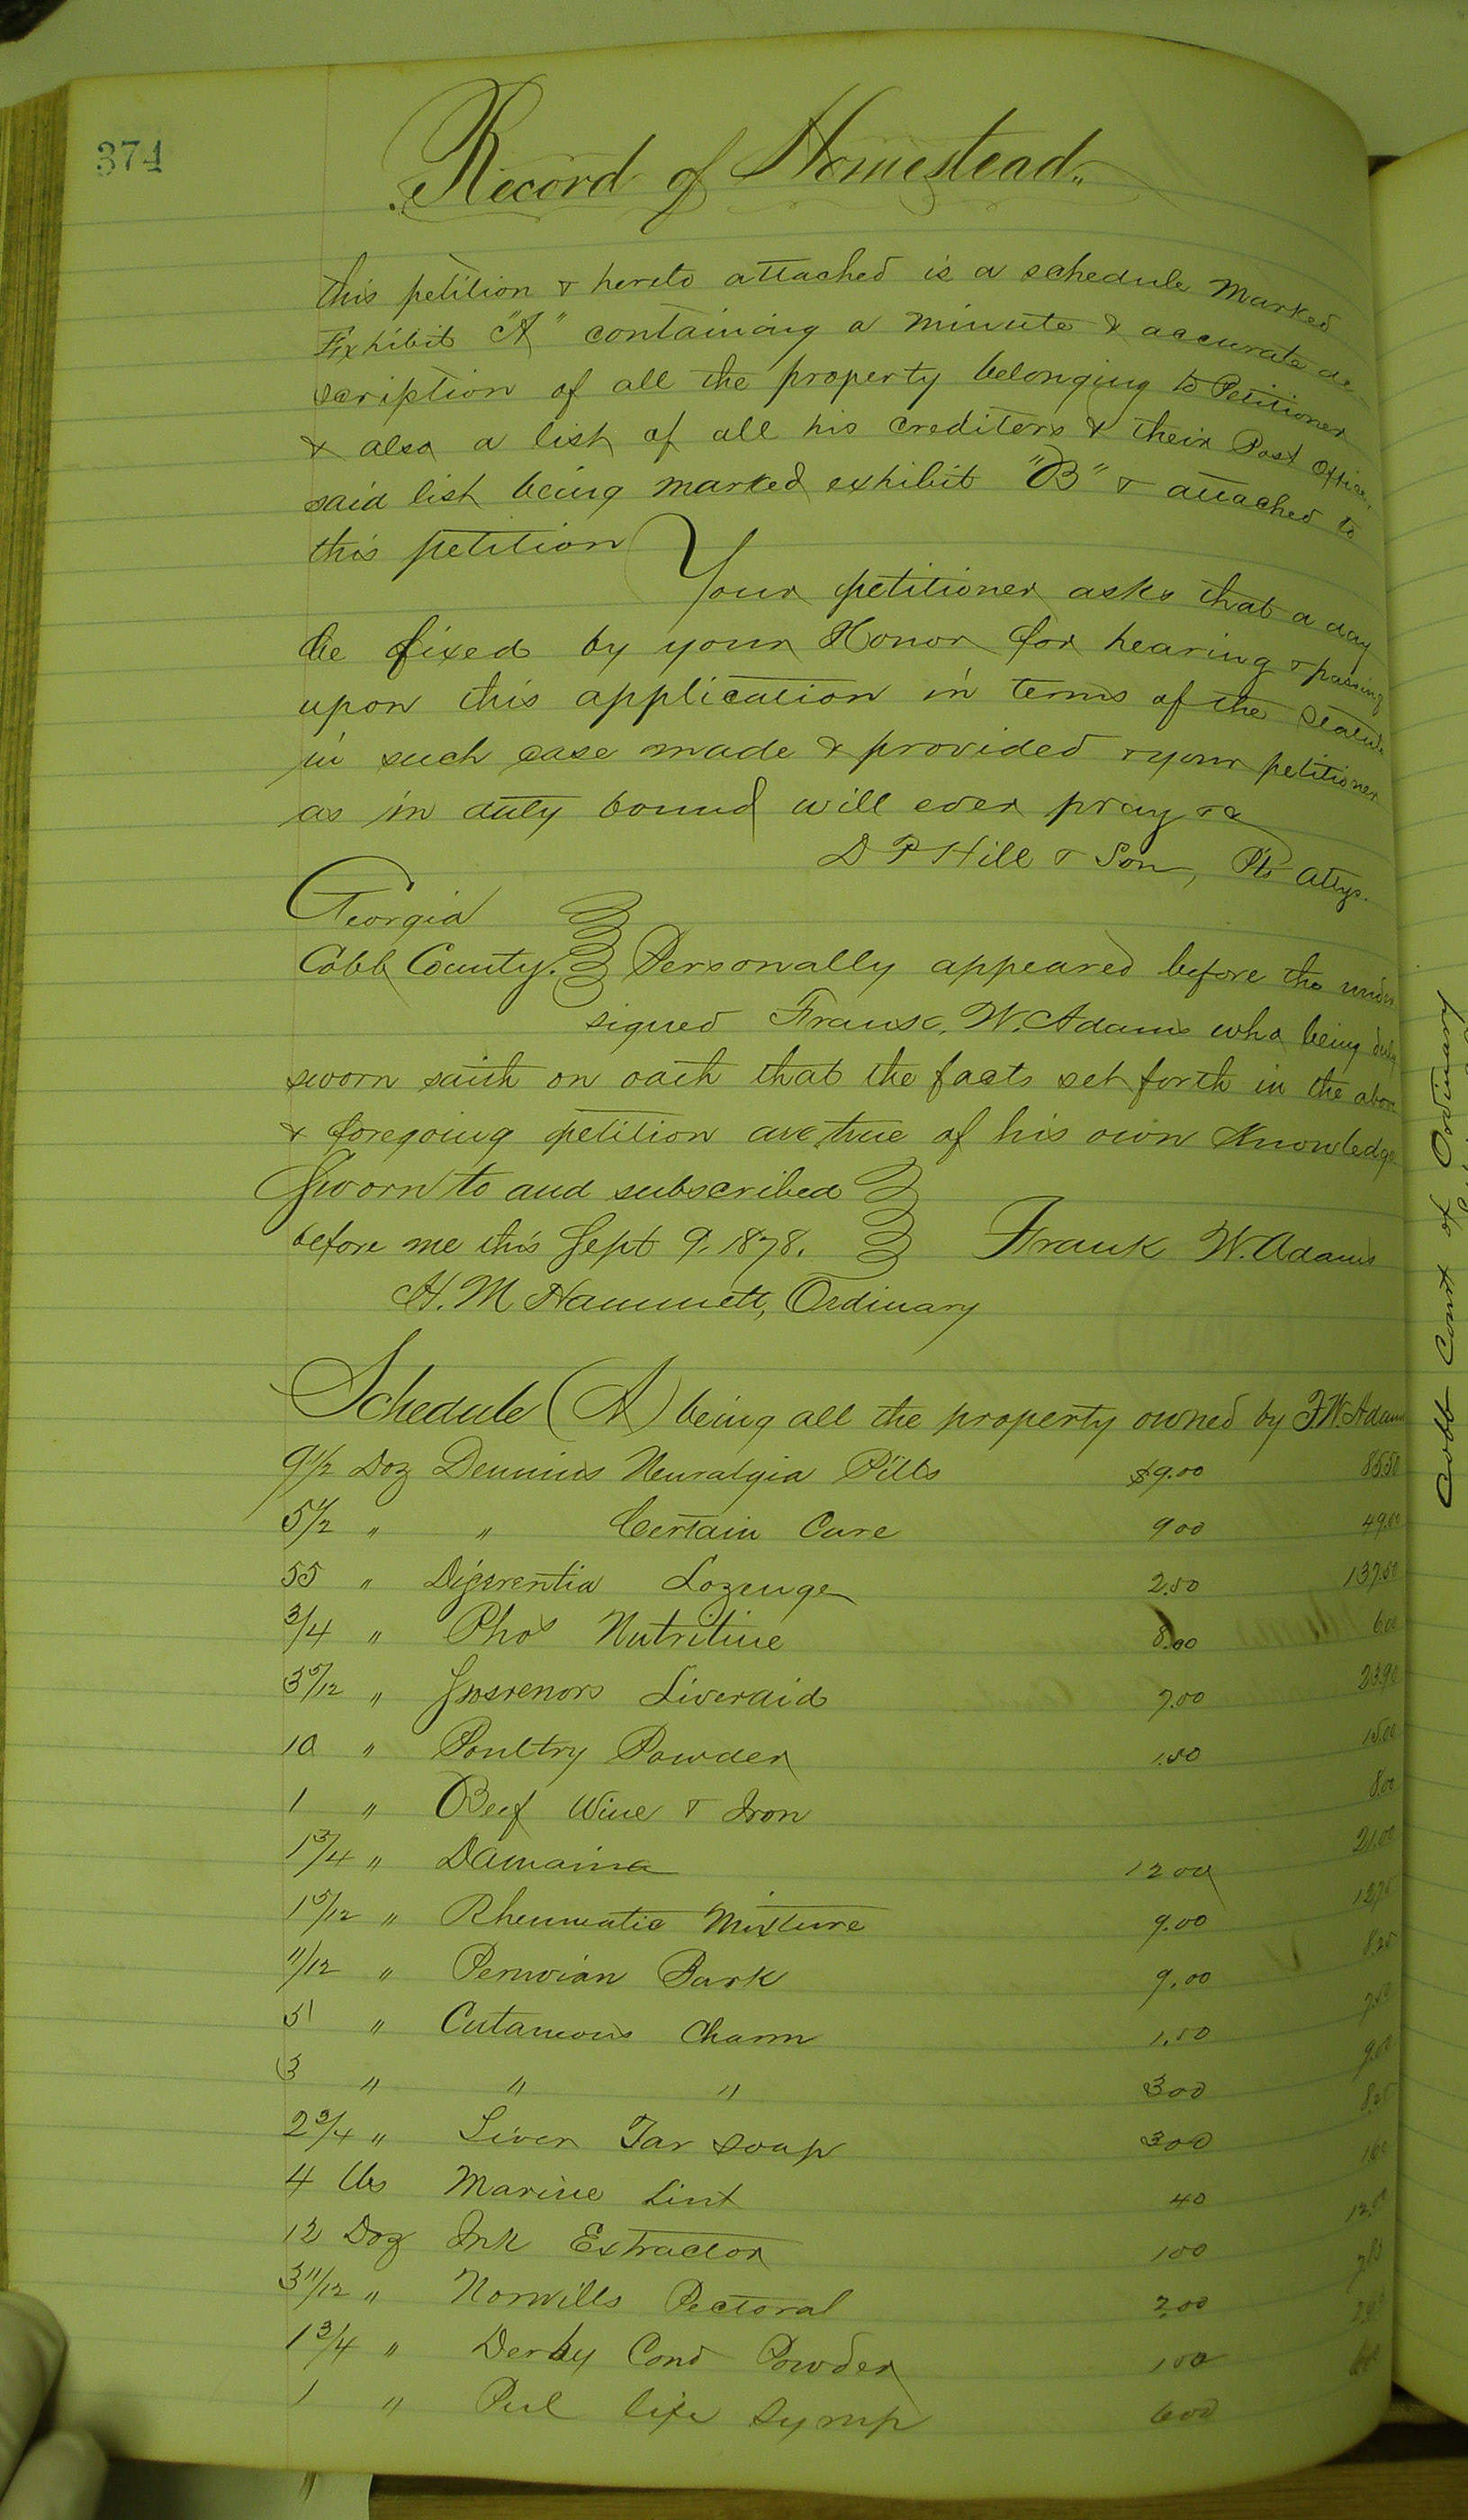 374
Record of Homestead
this petition & hereto attached is a schedule marked
Exhibit "A" containing a minute & accurate de-
scription of all the property belonging to Petitioner
& also a list of all his creditors & their Post Office
said list being marked exhibit "B" & attached to
this petition
Your petitioner asks that a day
be fixed by your Honor for hearing & passing
upon this application in terms of the Statute
in such case made & provided & your petitioner
as in duty bound will ever pray &c
D P Hill & Son, Pts Attys.
Georgia
Cobb County. Personally appeared before the under
signed Frank. W. Adams who being duly
sworn saith on oath that the facts set forth in the above
& foregoing petition are true of his own Knowledge
Sworn to and subscribed
before me this Sept 9. 1878. Frank W. Adams
H. M Hammett, Ordinary
Schedule (A) being all the property owned by F.W. Adams
9 1/2 Doz Dennins Neuralgia Pills $9.00 85.50
5 1/2 " " Certain Cure 9 00 49.50
55 " Lozenge 2.50 137.50
3/4 " Phos Nutritine 8.00 6.00
3 5/12 " Liveraid 7.00 23.90
10 " Poultry Powder 1.50 15.00
1 " Beef Wine & Iron 8.00
1 3/4 " Damaina 12 00 21.00
1 5/12 " Rheumatic Mixture 9.00 12.75
11/12 " Peruvian Bark 9.00 8.25
5 " Cutaneous Charm 1.50 7.50
3 " " " 3 00 9.00
2 3/4 " Liver Tar Soap 3 00 8.25
4 lbs Marine Lint 40 1.60
12 Doz Ink Extractor 1 00 12.00
3 11/12 " Norwills Pectoral 2.00 7.83
1 3/4 " Derby Cond Powder 1 00
1 " Pul life Syrup 6 00
Cobb Court of Ordinary